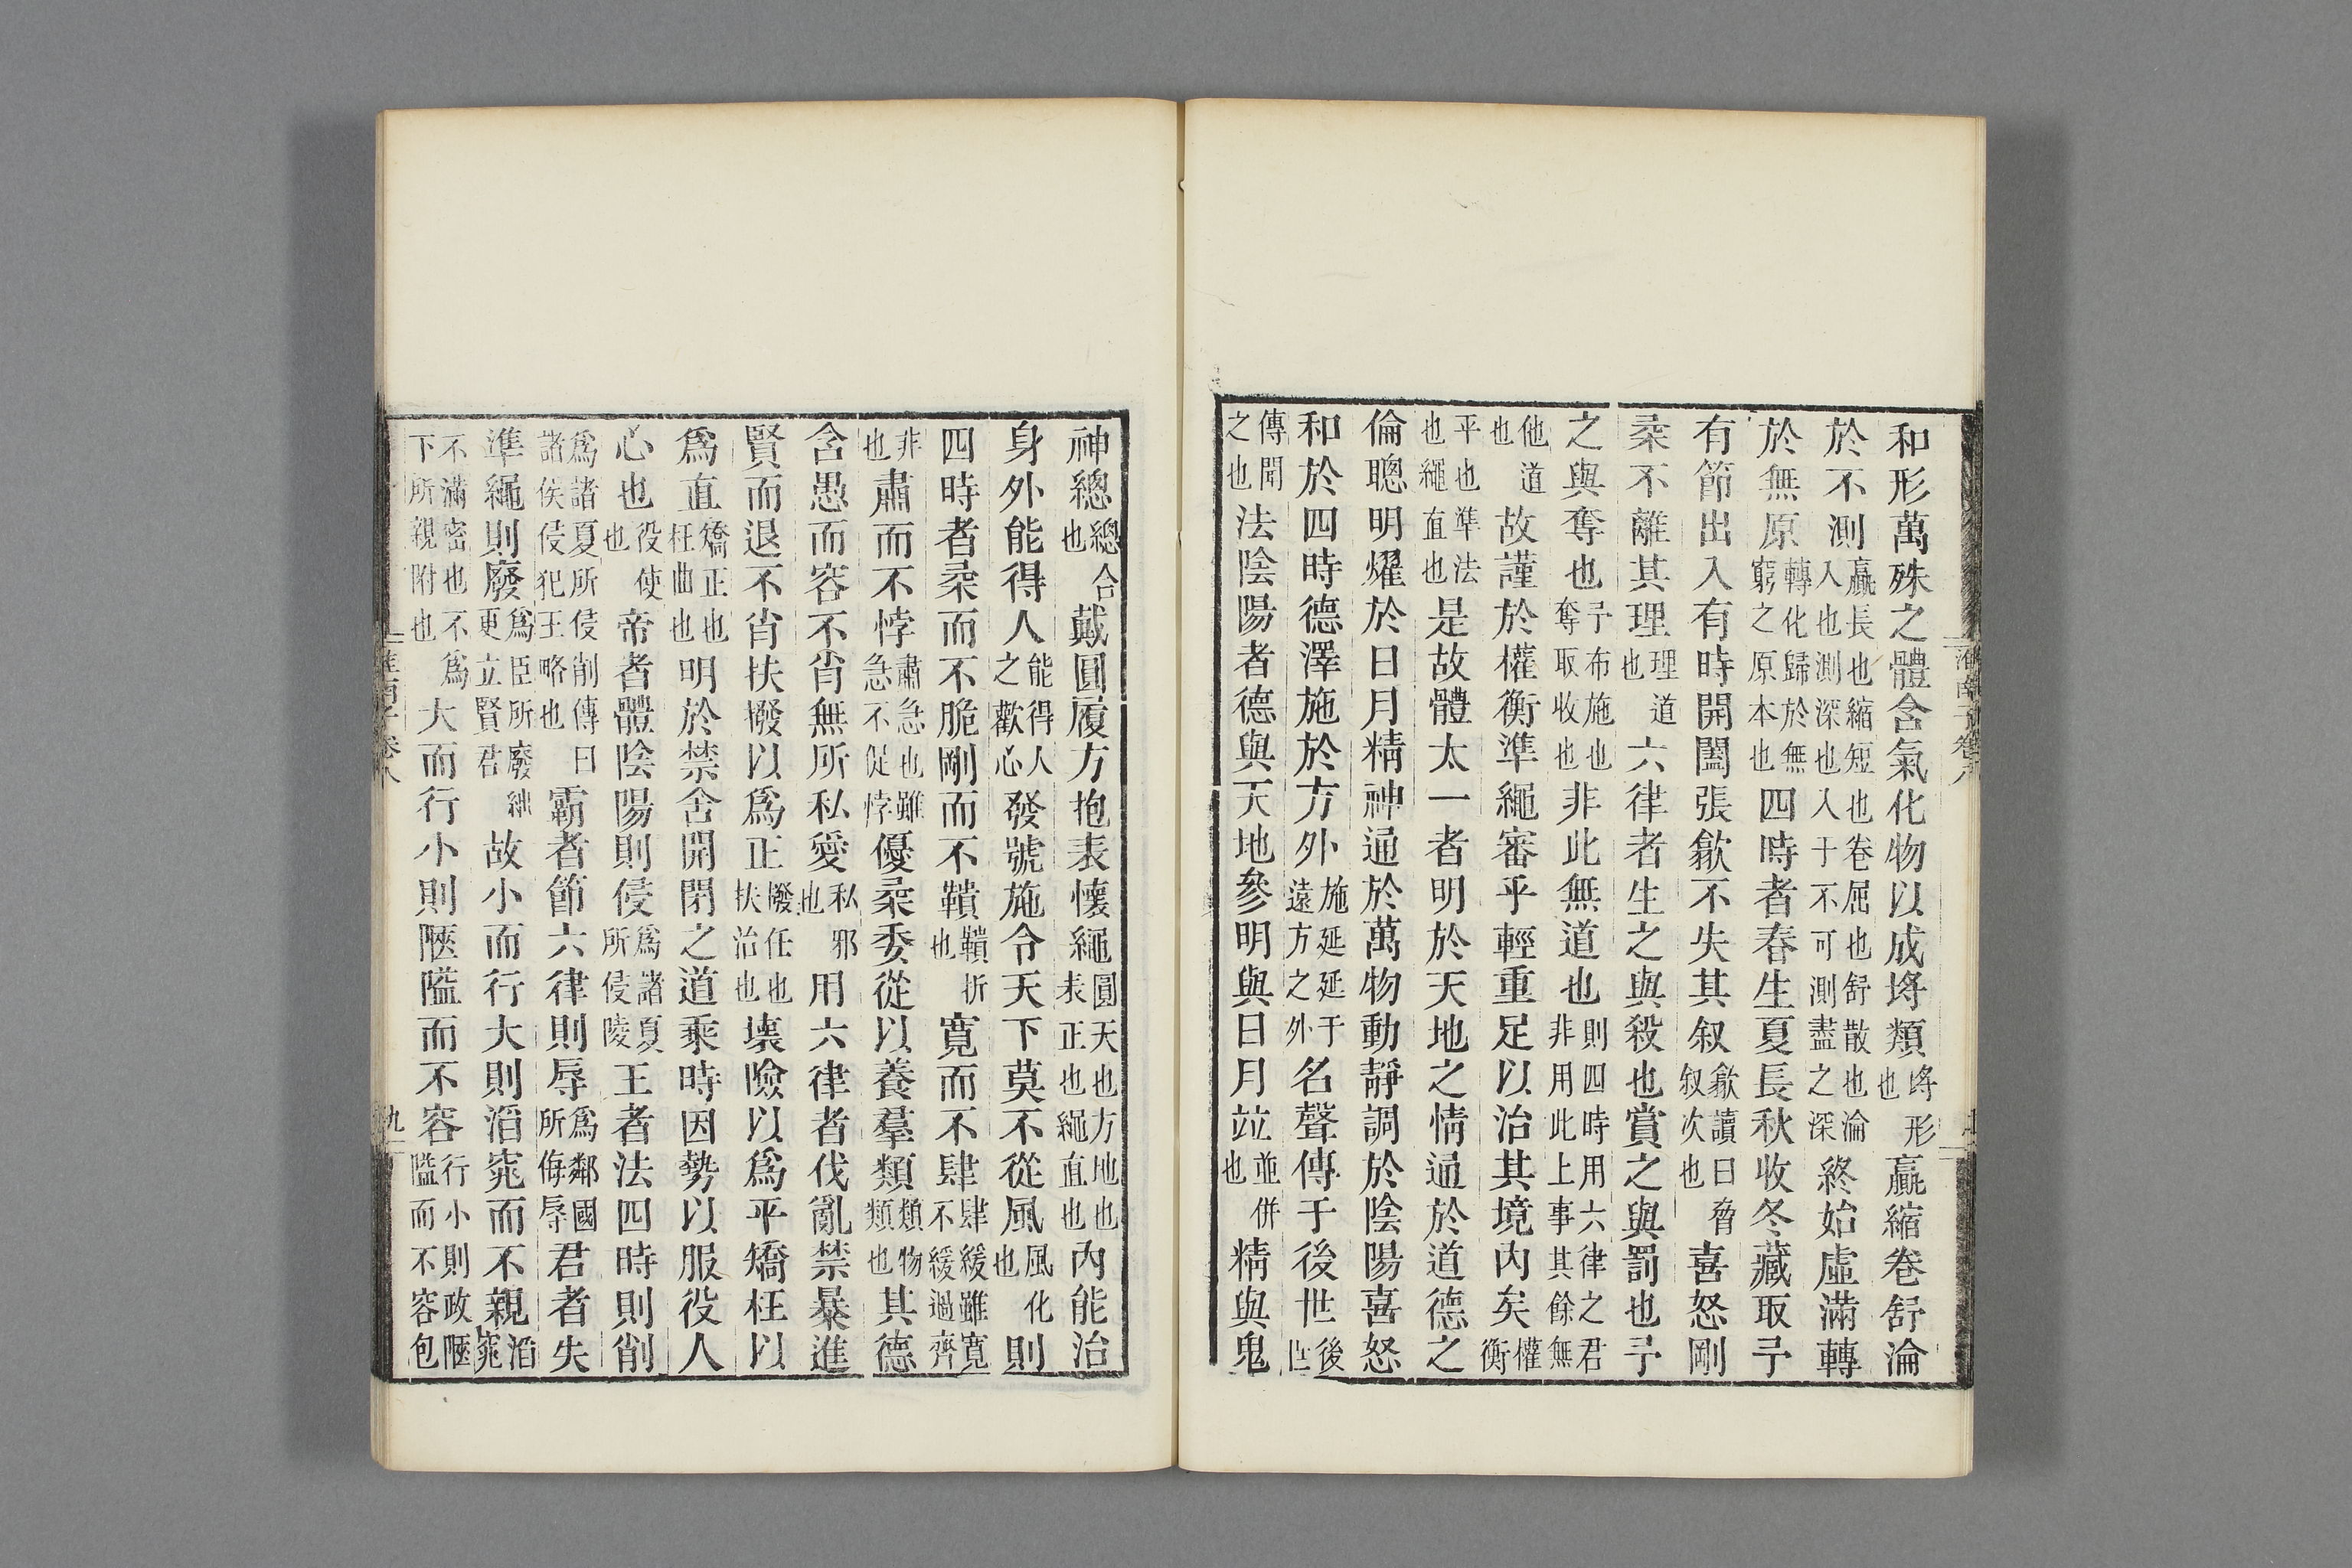 和形萬殊之體含氣化物以成埒類埒形也贏縮卷舒淪
於不測贏長也縮短也卷屈也舒散也淪入也測深也入于不可測盡之深終始虛滿轉
於無原轉化歸於無窮之原本也四時者春生夏長秋收冬藏取予
有節出入有時開闔張歙不失其叙歙讀曰脅叙次也喜怒剛
柔不離其理理道也六律者生之與殺也賞之與罰也予
之與奪也予布施也奪取收也非此無道也則四時用六律之君非用此上事其餘無
他道也故謹於權衡準繩審乎輕重足以治其境内矣權衡
平也準法也繩直也是故體太一者明於天地之情通於道德之
倫聰明燿於日月精神通於萬物動靜調於陰陽喜怒
和於四時德澤施於方外施延延于遠方之外名聲傳于後世後世
傳聞之也法陰陽者德與天地參明與日月竝並併也精與鬼
神總總合也戴圓履方抱表懷繩圓天也方地也表正也繩直也内能治
身外能得人能得人之歡心發號施令天下莫不從風風化也則
四時者柔而不脆剛而不鞼鞼折也寛而不肆肆緩雖寛不緩過齊
非也肅而不悖肅急也雖急不促悖優柔委從以養羣類類物類也其德
含愚而容不肖無所私愛私邪也用六律者伐亂禁暴進
賢而退不肖扶撥以爲正撥任也扶治也壞險以爲平矯枉以
爲直矯正也枉曲也明於禁舍開閉之道乘時因勢以服役人
心也役使也帝者體陰陽則侵爲諸夏所侵陵王者法四時則削
爲諸夏所侵削傳曰諸侯侵犯王略也霸者節六律則辱爲鄰國所侮辱君者失
準繩則廢爲臣所廢絀更立賢君故小而行大則滔窕而不親滔窕
不滿密也不爲下所親附也大而行小則陿隘而不容行小則政陿隘而不容包
淮南子卷八
九